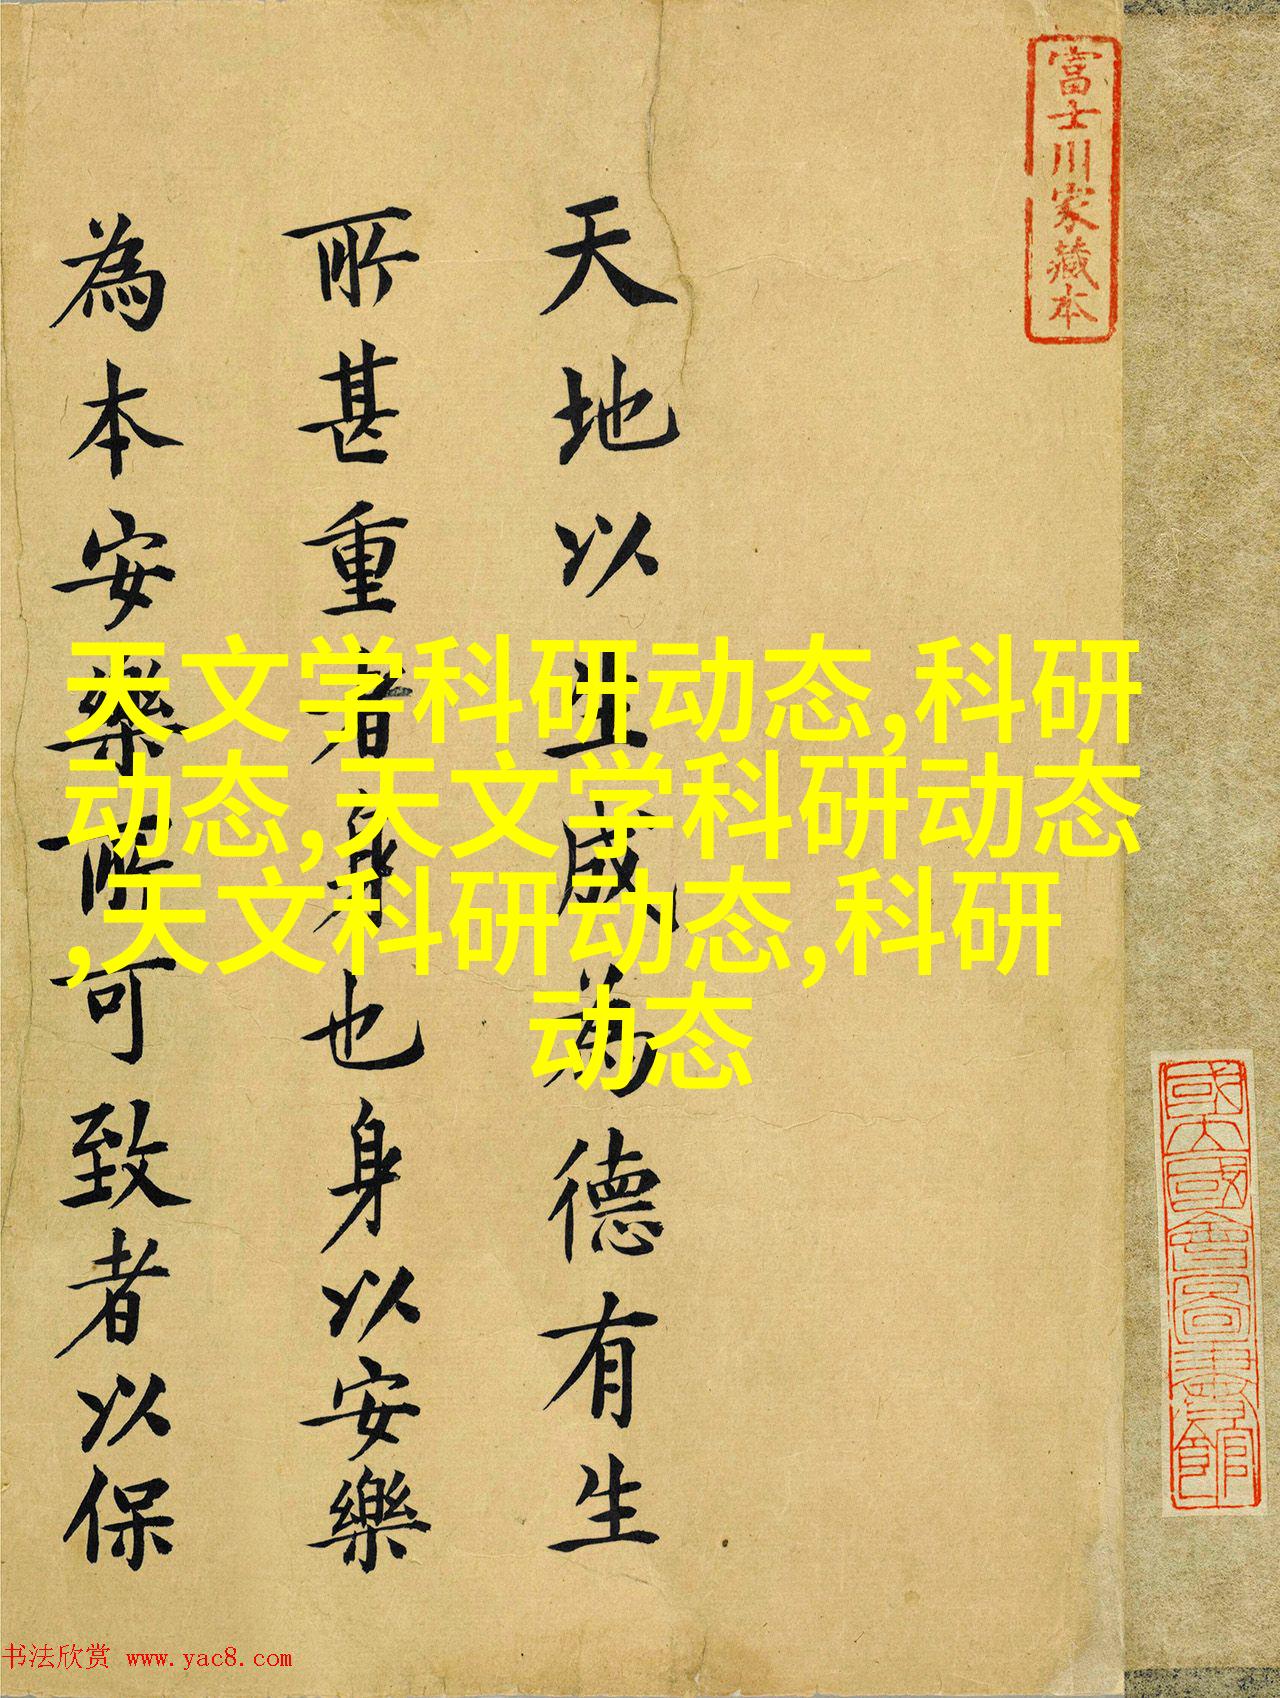 富士川家藏本
天地以生成為德有生
所甚重者身也身以安樂
為本安樂所可致者以保
天文学科研动态,科研
动态,天文学科研动态
,天文科研动态,科研
动态
國立國會圖書館
书法欣赏 www.yac8.com